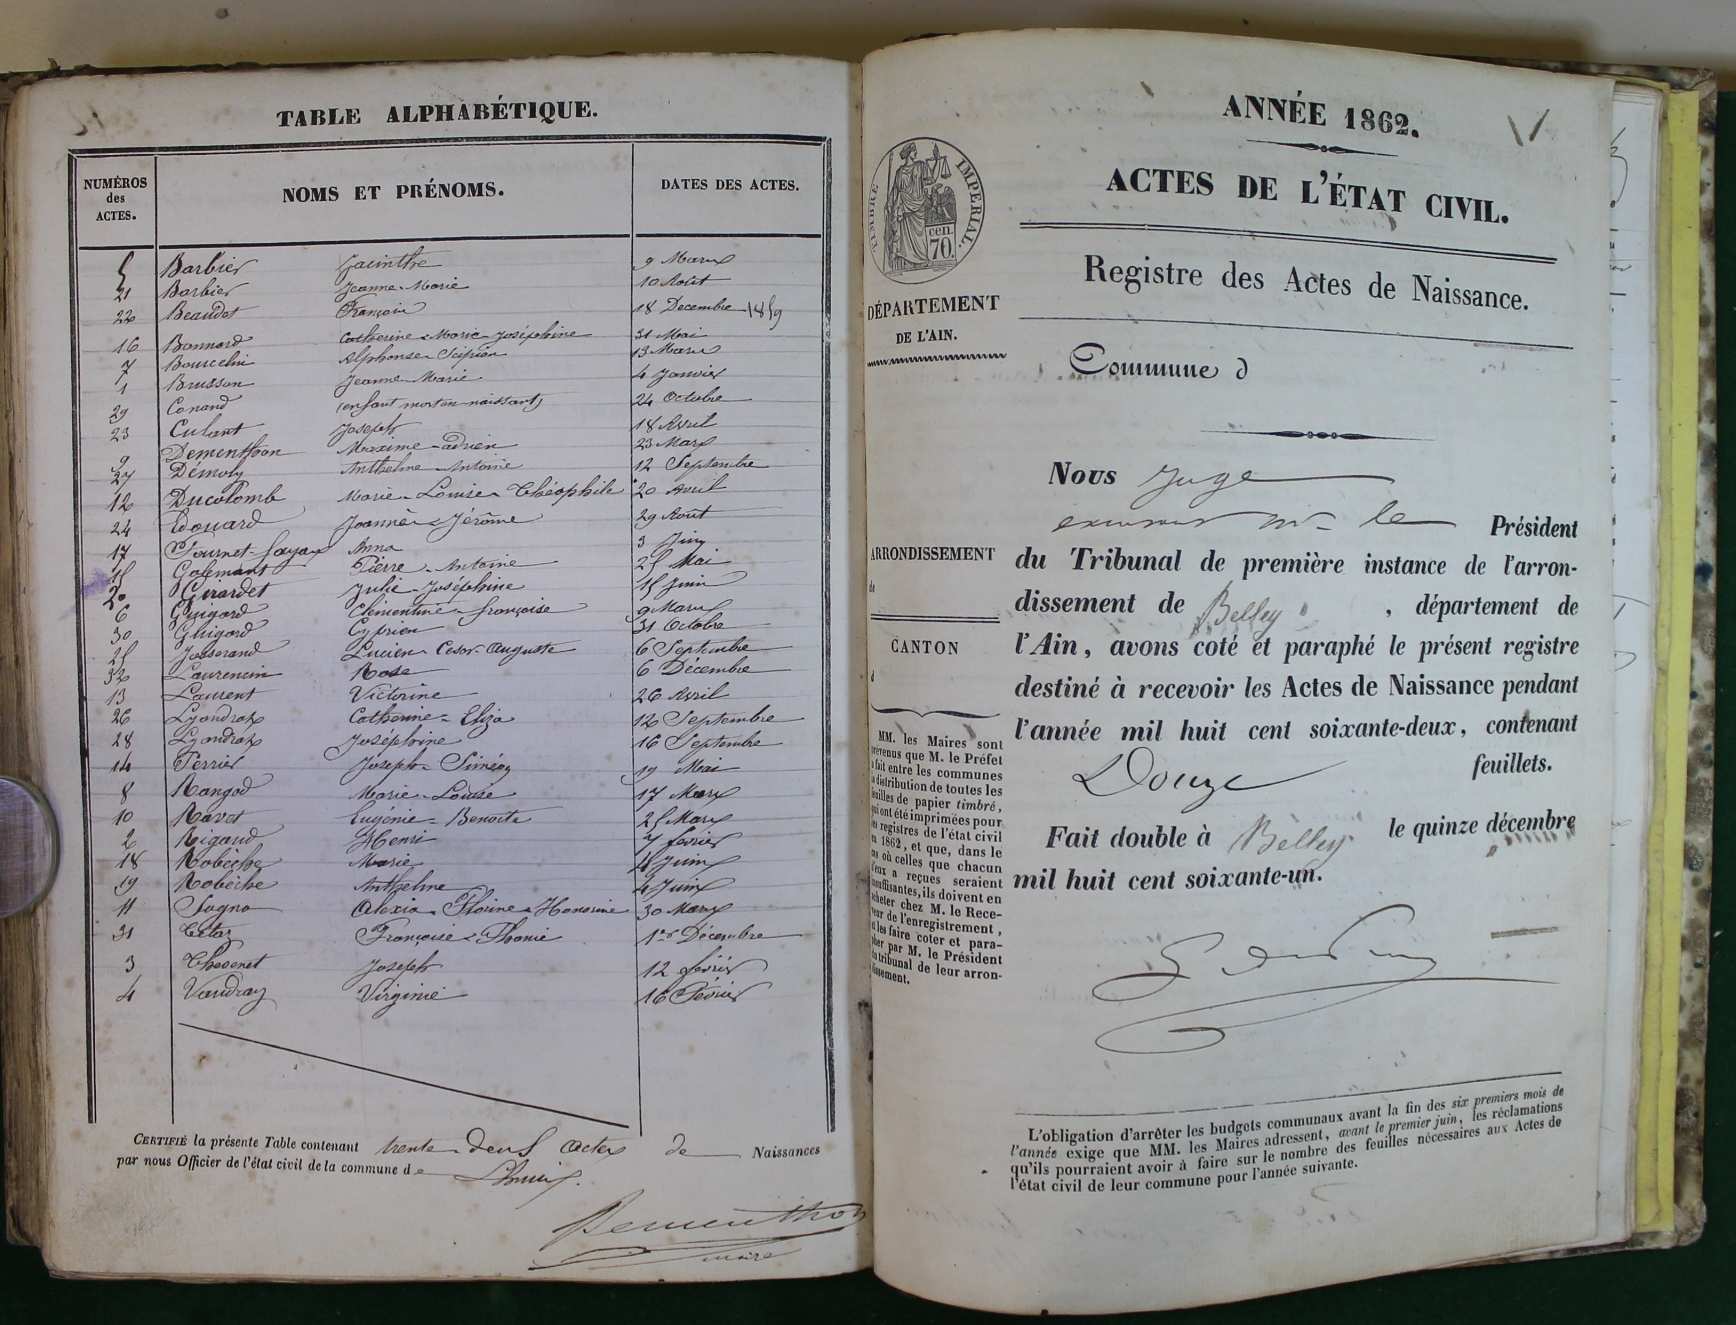 TABLE ALPHABÉTIQUE.
NUMÉROS des ACTES. NOMS ET PRÉNOMS. DATES DES ACTES.
5 Barbier Jacinthe 9 Mars
21 Barbier Jeanne-Marie 10 Août
22 Beaudet François 18 Décembre 1859
16 Bonnard Catherine-Marie-Joséphine 31 Mai
7 Bourcelin Alphonse-Scipion 13 Mars
1 Brusson Jeanne-Marie 4 Janvier
29 Conand (enfant mort en naissant) 24 Octobre
23 Culant Joseph 18 Avril
9 Dementhon Maxime-adrien 23 Mars
27 Démoly Anthelme-Antoine 12 Septembre
12 Ducolomb Marie-Louise-Théophile 20 Avril
24 Edouard Joannès-Jérôme 29 Août
17 Anna 3 Juin
15 Golemant Pierre-Antoine 25 Mai
20 Girardet Julie-Joséphine 15 Juin
6 Guigard Clémentine-françoise 9 Mars
30 Guigard Cyprien 31 Octobre
25 Josserand Lucien-César-Auguste 6 Septembre
32 Laurencin Rose 6 Décembre
13 Laurent Victorine 26 Avril
26 Lyandrat Catherine-Eliza 12 Septembre
28 Lyandrat Joséphine 16 Septembre
14 Perrier Joseph-Siméon 19 Mai
8 Rangod Marie-Louise 17 Mars
10 Ravet Eugénie-Benoite 25 Mars
2 Rigaud Henri 7 février
18 Robèche Marie 4 Juin
19 Robèche Anthelme 4 Juin
11 Sogno Alexia-Florine-Honorine 30 Mars
31 Françoise 1er Décembre
3 Thevenet Joseph 12 février
4 Vaudray Virginie 16 Février
CERTIFIÉ la présente Table contenant trente-deux actes de Naissances
par nous Officier de l'état civil de la commune de Lhuis.
Dementhon
maire
ANNÉE 1862.
ACTES DE L'ÉTAT CIVIL.
Registre des Actes de Naissance.
TIMBRE IMPÉRIAL.
cen.
70.
DÉPARTEMENT
DE L'AIN.
Commune d
Nous Juge
le Président
du Tribunal de première instance de l'arron-
dissement de Belley, département de
l'Ain, avons coté et paraphé le présent registre
destiné à recevoir les Actes de Naissance pendant
l'année mil huit cent soixante-deux, contenant
Douze feuillets.
Fait double à Belley le quinze décembre
mil huit cent soixante-un.
ARRONDISSEMENT
de
CANTON
d
MM. les Maires sont
prévenus que M. le Préfet
a fait entre les communes
la distribution de toutes les
feuilles de papier timbré,
qui ont été imprimées pour
les registres de l'état civil
en 1862, et que, dans le
cas où celles que chacun
d'eux a reçues seraient
insuffisantes, ils doivent en
acheter chez M. le Rece-
veur de l'enregistrement,
et les faire coter et para-
pher par M. le Président
du tribunal de leur arron-
dissement.
L'obligation d'arrêter les budgets communaux avant la fin des six premiers mois de
l'année exige que MM. les Maires adressent, avant le premier juin, les réclamations
qu'ils pourraient avoir à faire sur le nombre des feuilles nécessaires aux Actes de
l'état civil de leur commune pour l'année suivante.